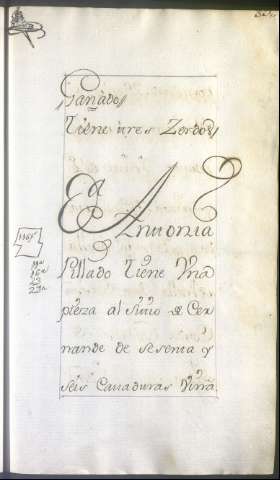 Ganados
Tiene tres Zerdos
Antonia
Pillado Tiene Una
pieza al sitio de Cer
nande de sesenta y
seis cavaduras Viña